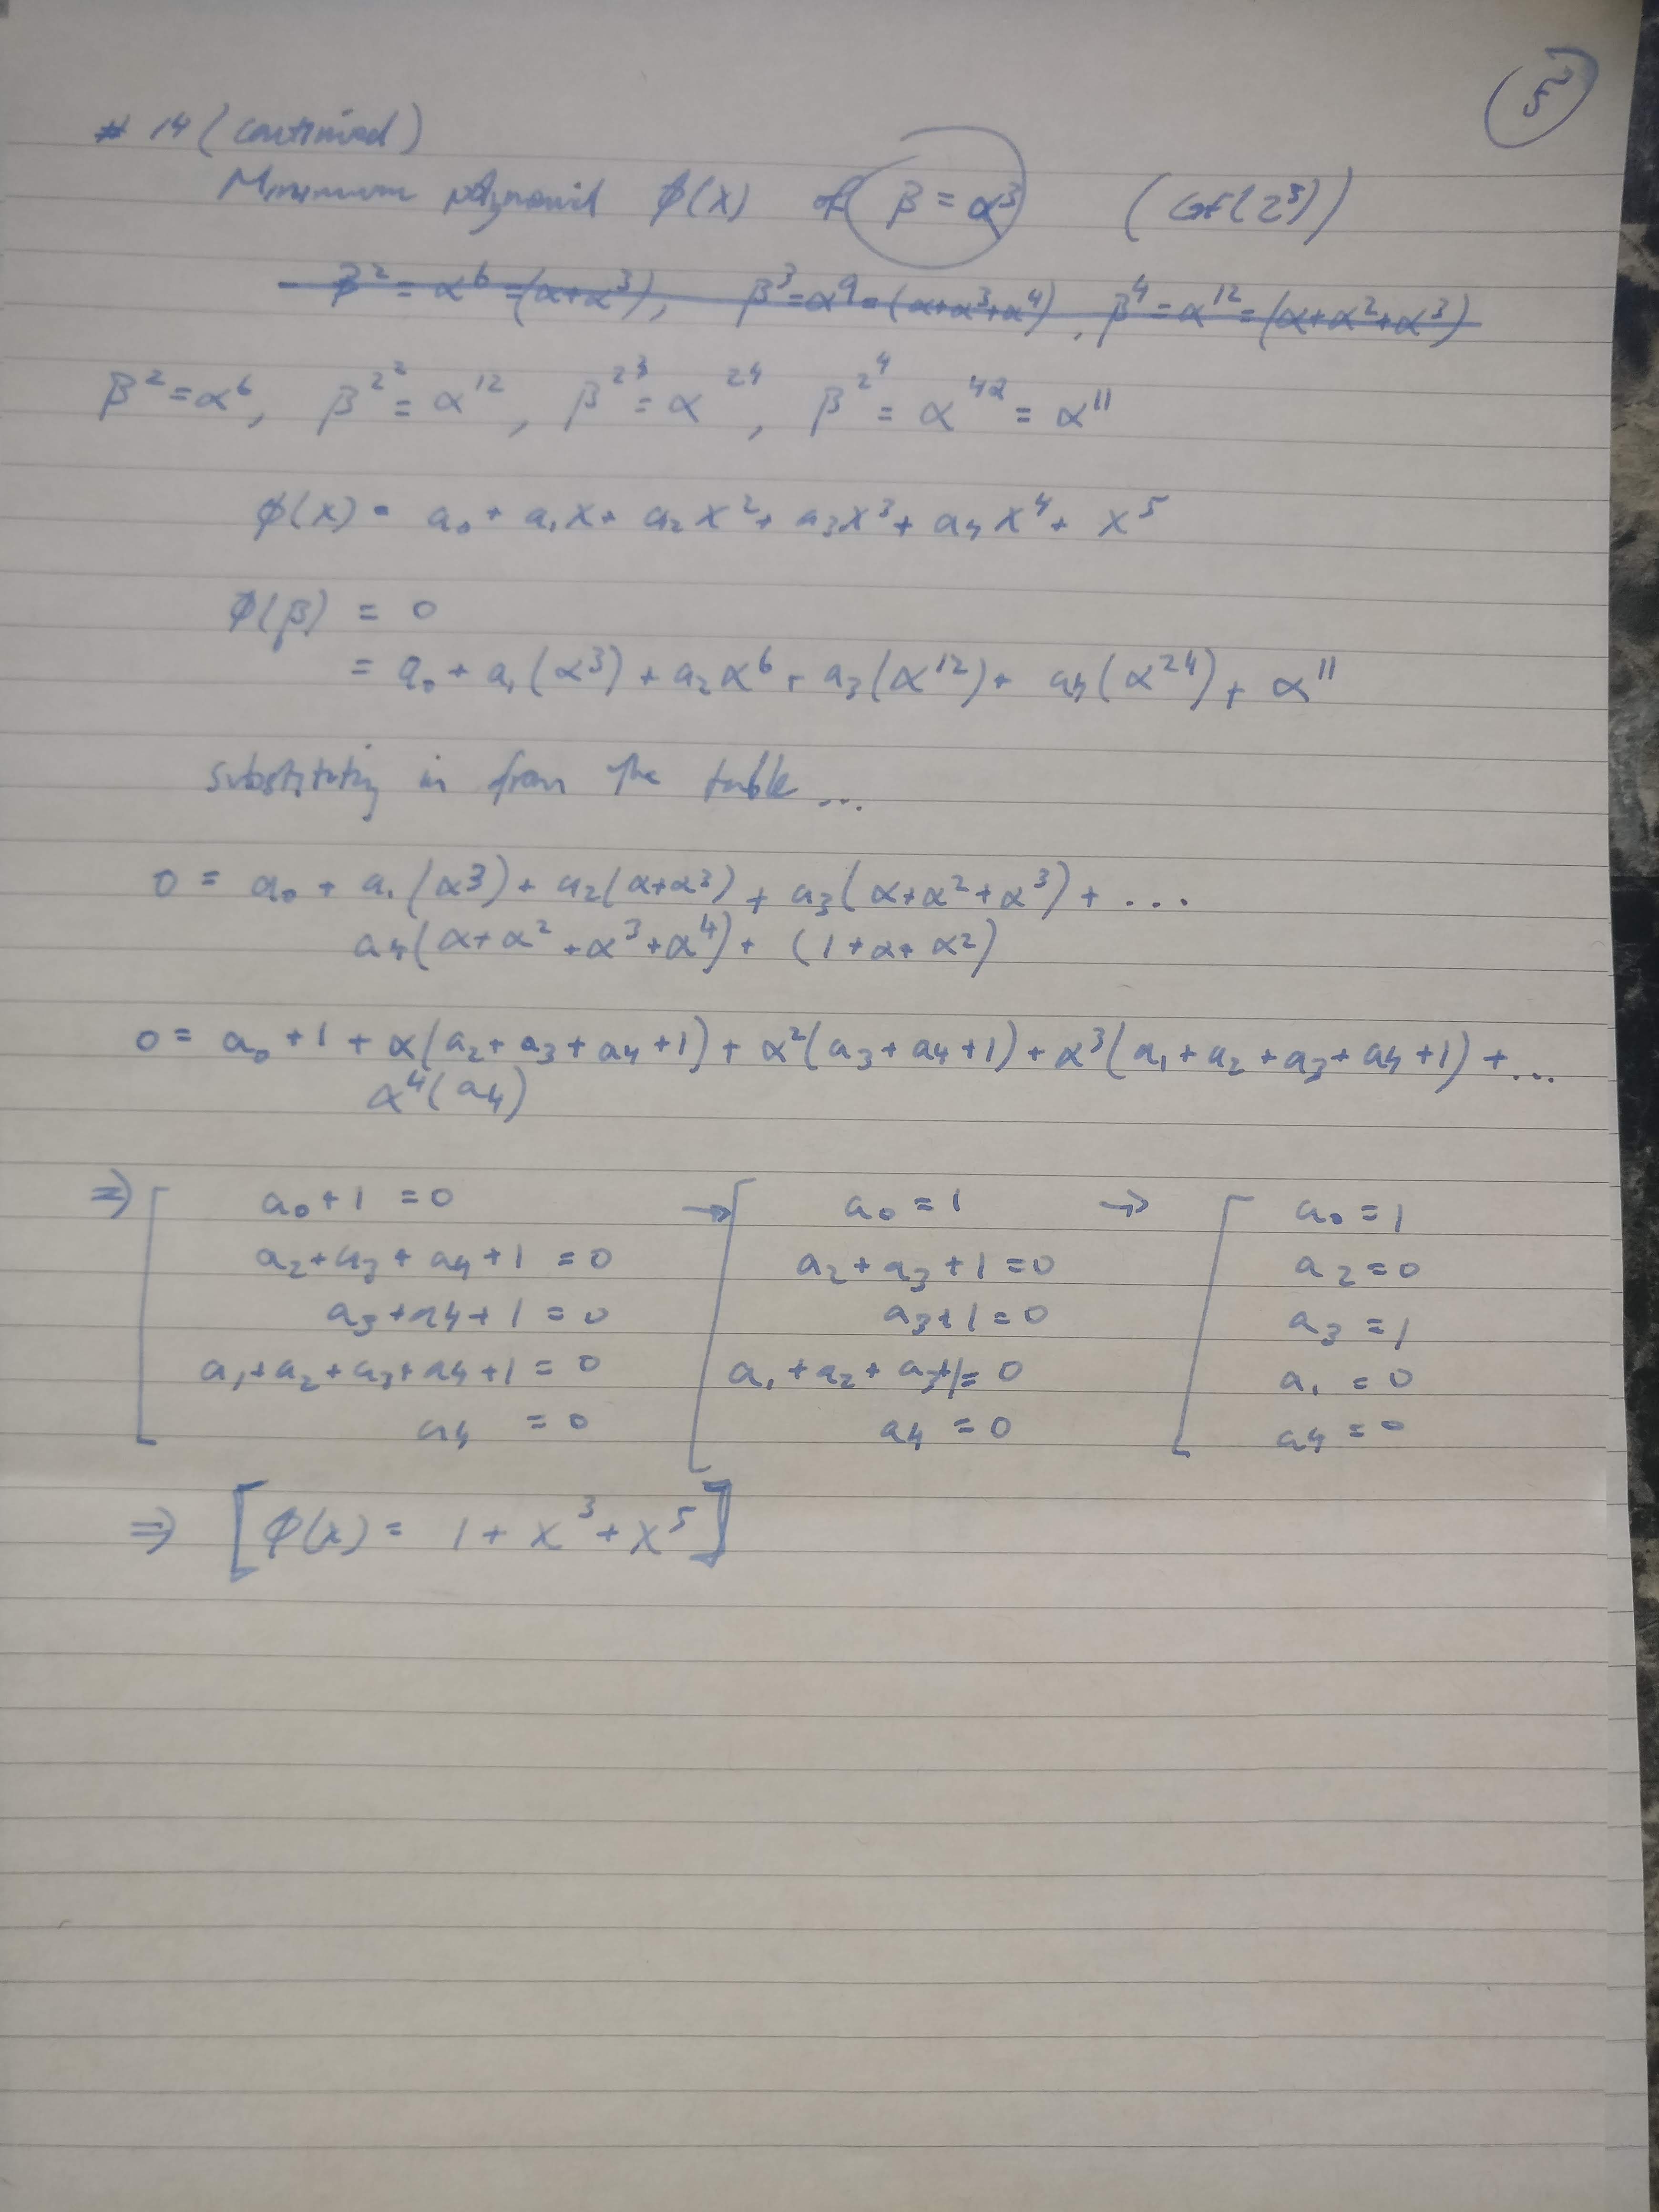 5
# 14 (continued)
Minimum polynomial ϕ(x) of β = α³ (GF(2⁵))
β² = α⁶ = (α+α³), β³ = α⁹ = (α+α³+α⁴), β⁴ = α¹² = (α+α²+α³)
β² = α⁶, β^2² = α¹², β^2³ = α²⁴, β^2⁴ = α⁴² = α¹¹
ϕ(x) = a₀ + a₁x + a₂x² + a₃x³ + a₄x⁴ + x⁵
ϕ(β) = 0
= a₀ + a₁(α³) + a₂α⁶ + a₃(α¹²) + a₄(α²⁴) + α¹¹
substituting in from the table ...
0 = a₀ + a₁(α³) + a₂(α+α³) + a₃(α+α²+α³) + ...
a₄(α+α²+α³+α⁴) + (1+α+α²)
0 = a₀ + 1 + α(a₂+a₃+a₄+1) + α²(a₃+a₄+1) + α³(a₁+a₂+a₃+a₄+1) + ...
α⁴(a₄)
⇒ [ a₀+1 = 0 → [ a₀ = 1 → [ a₀ = 1
a₂+a₃+a₄+1 = 0 a₂+a₃+1 = 0 a₂ = 0
a₃+a₄+1 = 0 a₃+1 = 0 a₃ = 1
a₁+a₂+a₃+a₄+1 = 0 a₁+a₂+a₃+1 = 0 a₁ = 0
a₄ = 0 a₄ = 0 a₄ = 0
⇒ [ϕ(x) = 1 + x³ + x⁵]